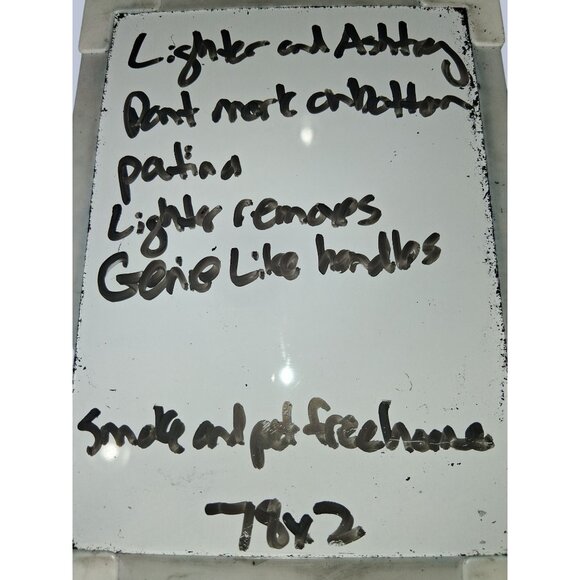 Lighter and Ashtray
Paint mark on bottom
patina
Lighter removes
Genie Like handles
smoke and pet free home
78x2